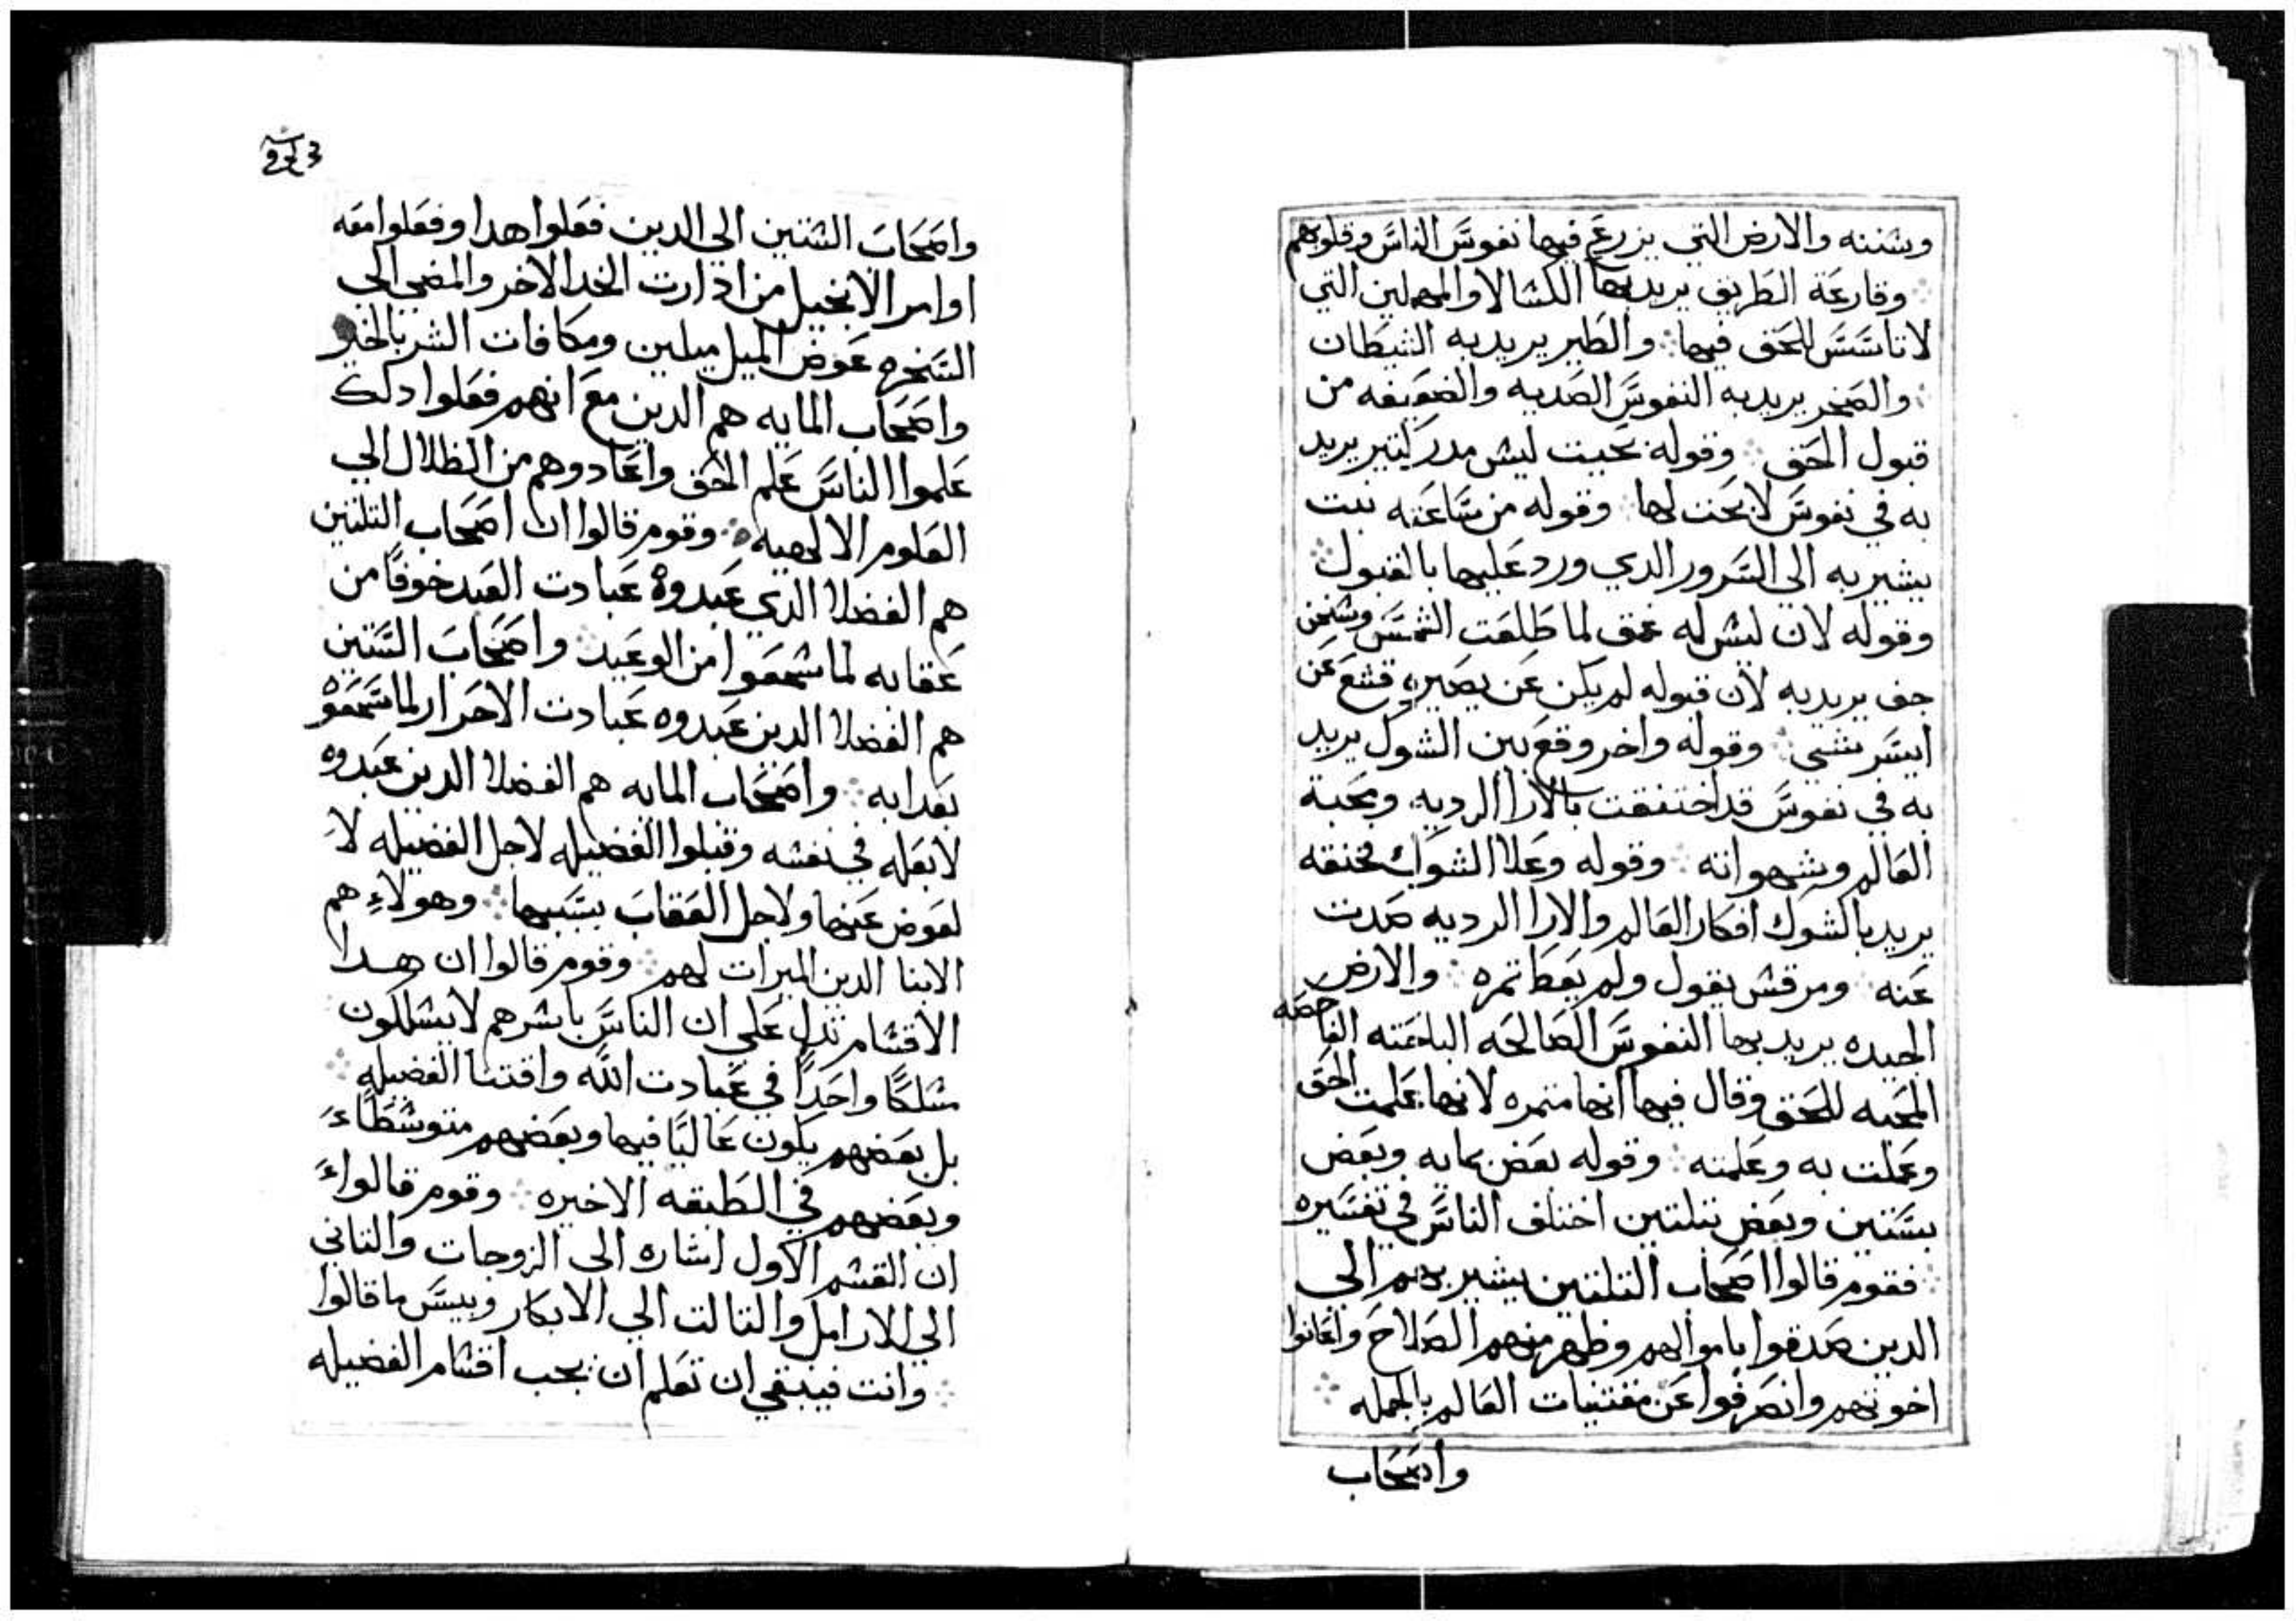 وسننه والارض التي يزرع فيها نفوس الناس وقلوبهم
وقارعة الطريق يريد بها الكسالا والمهملين التي
لا تاسس للحق فيها والطير يريد به الشيطان
والصخر يريد به النفوس الصديه والضعيفه من
قبول الحق وقوله بحيت ليس مدر كتير يريد
به في نفوس لا بحت لها وقوله من ساعته نبت
يشير به الي السرور الدي ورد عليها بالقبول
وقوله لان ليس له عمق لما طلعت الشمس وسخن
جف يريد به لان قبوله لم يكن عن بصيره قشع عن
ايسر شي وقوله واخر وقع بين الشوك يريد
به في نفوس قد اختنقت بالارا الرديه ومحبة
العالم وشهواته وقوله وعلا الشوك فخنقه
يريد بالشوك افكار العالم والارا الرديه صدت
عنه ومرقس يقول ولم يعطا تمره والارض
الجيده يريد بها النفوس الصالحه الباحته الفاحصه
المحبه للحق وقال فيها انها متمره لانها علمت الحق
وعملت به وعلمته وقوله بعض بمايه وبعض
بستين وبعض بتلتين اختلف الناس في تفسيره
فقوم قالوا اصحاب التلتين يشير بهم الي
الدين صدقوا باموالهم وظهر منهم الصلاح واعانوا
اخوتهم وانصرفوا عن مقتنيات العالم بالجمله
واصحاب
واصحاب الستين الي الدين فعلوا هدا وفعلوا معه
اوامر الانجيل من ادارت الخد الاخر والمضي الي
السخره عوض الميل ميلين ومكافات الشر بالخير
واصحاب المايه هم الدين مع انهم فعلوا دلك
علموا الناس علم الحق واعادوهم من الظلال الي
العلوم الالهيه وقوم قالوا ان اصحاب التلتين
هم الفضلا الدي عبدوه عبادت العبد خوفًا من
عقابه لما سمعوا من الوعيد واصحاب الستين
هم الفضلا الدين عبدوه عبادت الاحرار لما سمعوه
بعدابه واصحاب المايه هم الفضلا الدين عبدوه
لا بعله في نفسه وقبلوا الفضيله لاجل الفضيله لا
لعوض عنها ولاجل العقاب بسببها وهولاءِ هم
الابنا الدين الميرات لهم وقوم قالوا ان هدا
الاقسام تدل علي ان الناس باسرهم لا يسلكون
مسلكًا واحدًا في عبادت الله واقتنا الفضيله
بل بعضهم يكون عاليًا فيها وبعضهم متوسطاء
وبعضهم في الطبقه الاخيره وقوم قالواء
ان القسم الاول اشاره الي الزوجات والتاني
الي الارامل والتالت الي الابكار وبيس ما قالوا
وانت فينبغي ان تعلم ان بحب اقسام الفضيله